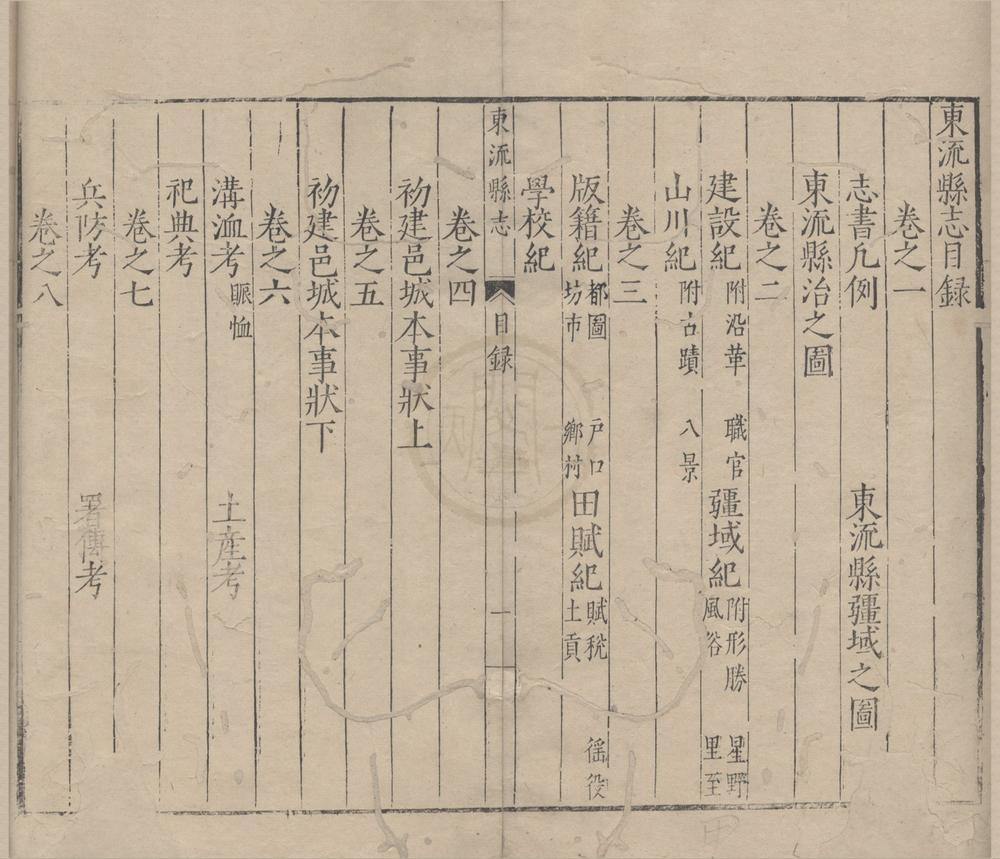 東流縣志目録
卷之一
志書凡例 東流縣疆域之圖
東流縣治之圖
卷之二
建設紀 附沿革 職官 疆域紀 附形勝 風俗 星野 里至
山川紀 附古蹟 八景
卷之三
版籍紀 都圖 坊市 戸口 鄉村 田賦紀 賦稅 土貢 徭役
學校紀
東流縣志 目録 一
卷之四
初建邑城本事狀上
卷之五
初建邑城本事狀下
卷之六
溝洫考 賑恤 土産考
祀典考
卷之七
兵防考 署傳考
卷之八